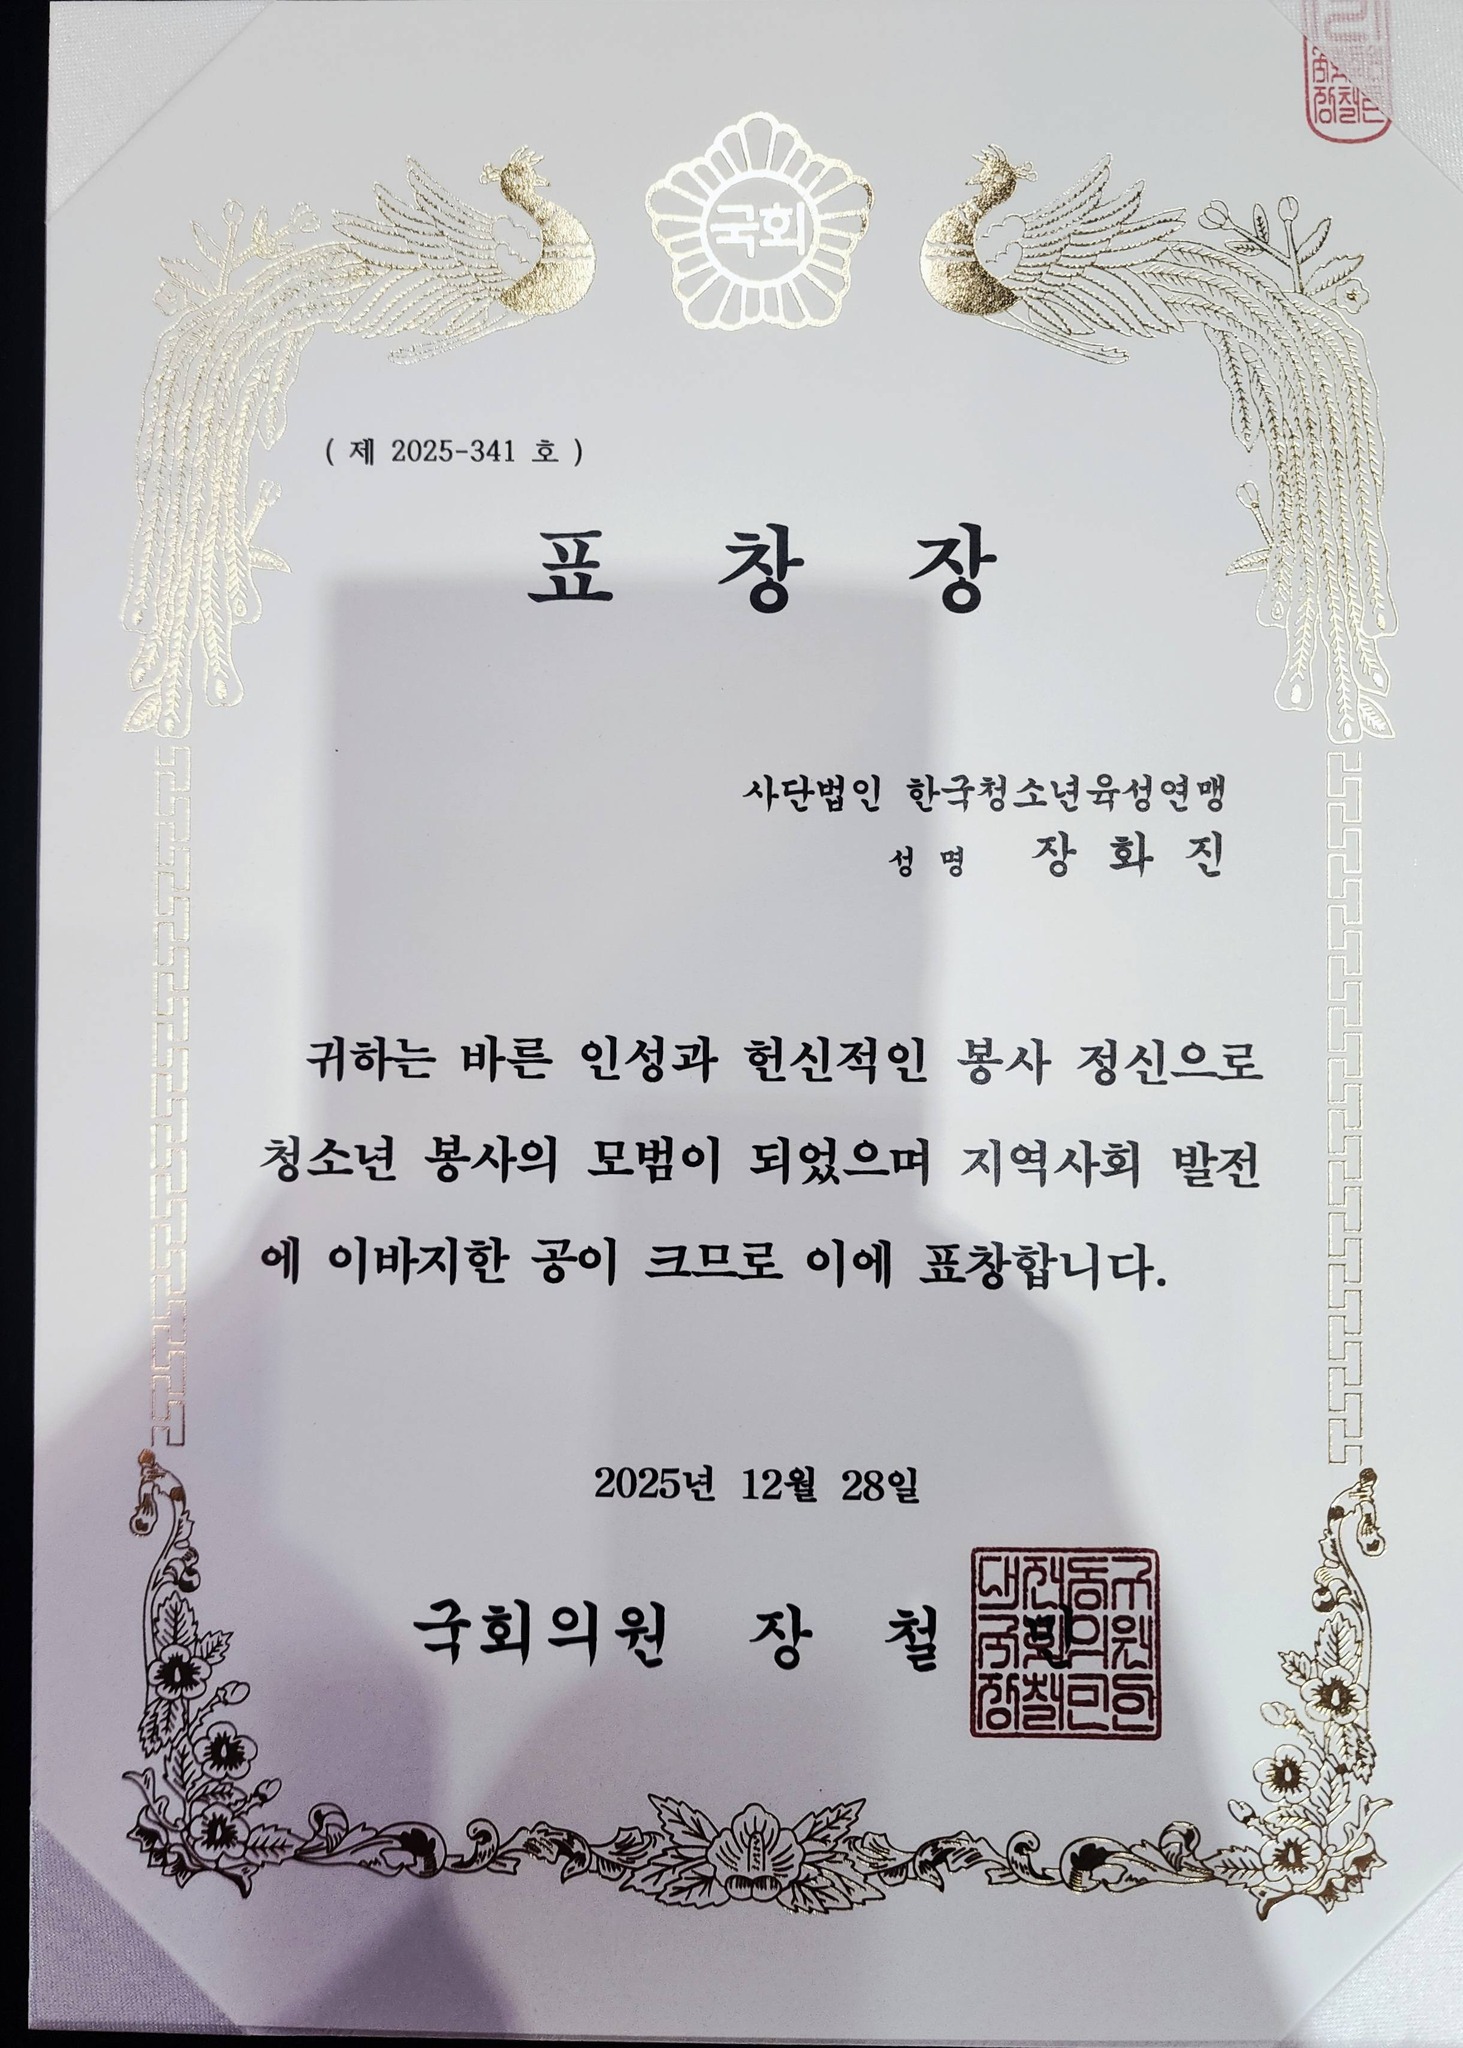 국회
( 제 2025-341 호 )
표 창 장
사단법인 한국청소년육성연맹
성 명 장 화 진
귀하는 바른 인성과 헌신적인 봉사 정신으로
청소년 봉사의 모범이 되었으며 지역사회 발전
에 이바지한 공이 크므로 이에 표창합니다.
2025년 12월 28일
국회의원 장 철 민
대전동구
국회의원
장철민인